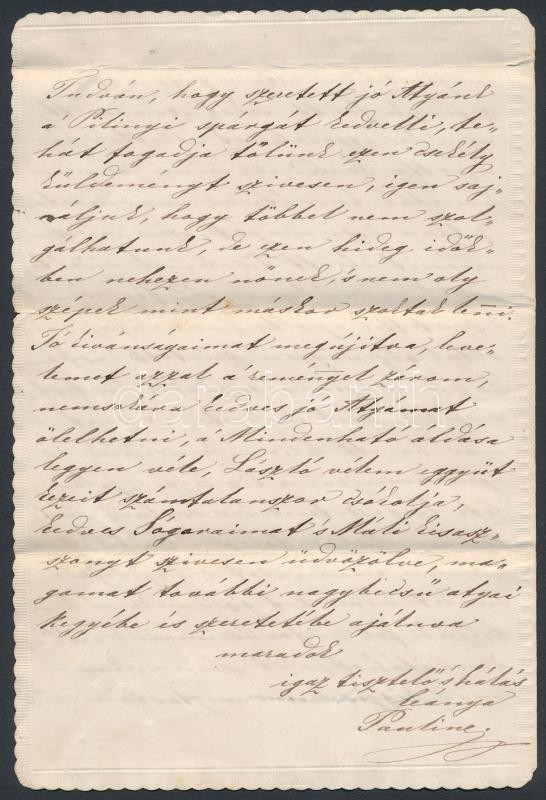 Tudván, hogy szeretett jó Atyánk
a' Pilinyi spárgát kedvelli, te-
hát fogadja tőlünk ezen csekély
küldeményt szivesen, igen saj-
náljuk, hogy többel nem szol-
gálhatunk, de ezen hideg idők-
ben nehezen nőnek, 's nem oly
szépek mint máskor szoktak lenni.
Jó kivánságaimat megújitva, leve-
lemet azzal a' reménnyel zárom,
nemsokára édves jó Atyámat
ölelhetni, a' Mindenható áldása
legyen véle, László vélem eggyüt
kezeit számtalanszor csókolja,
kedves Sógoraimat 's Máli kisasz-
szonyt szivesen üdvözölve, ma-
gamat további nagybecsű atyai
kegyébe és szeretetébe ajálva
maradok
igaz tisztelő 's hálás
leánya
Pauline
darabanth